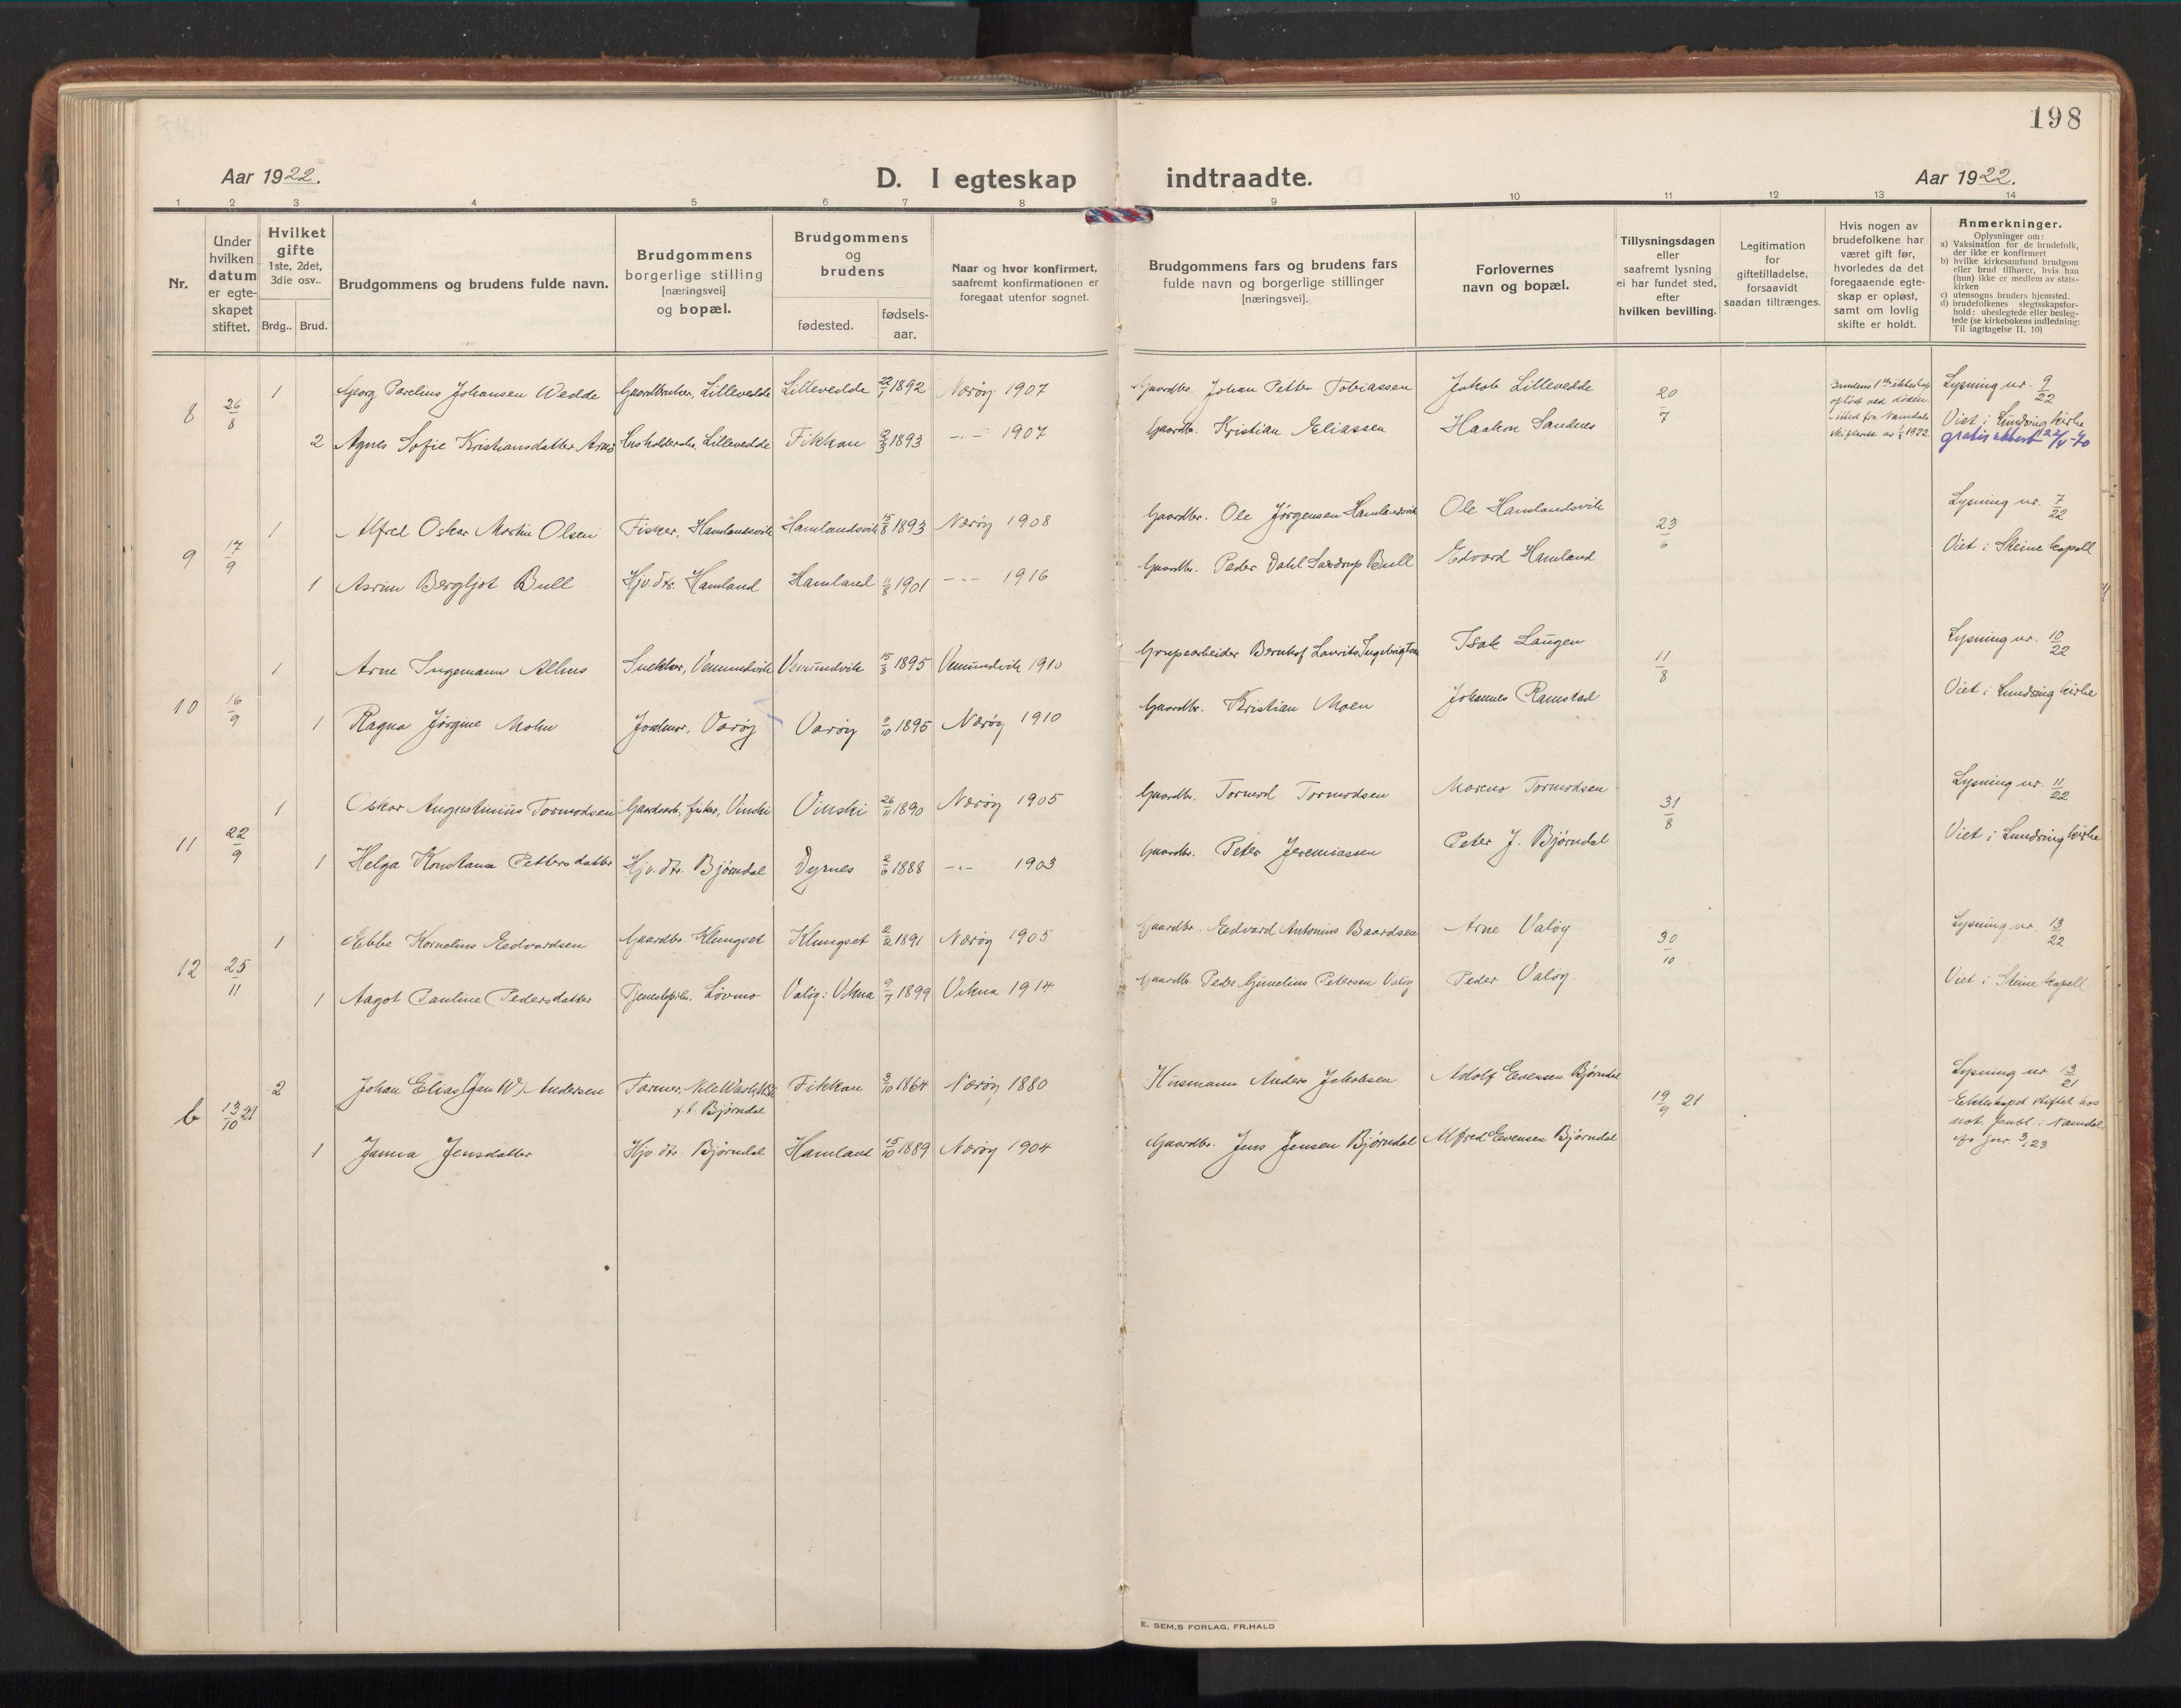 198
Aar 1922. D. I egteskap indtraadte. Aar 1922.
1 2 3 4 5 6 7 8 9 10 11 12 13 14
Nr.
Under hvilken datum er egte- skapet stiftet.
Hvilket gifte 1ste, 2det, 3die osv..
Brdg.. Brud.
Brudgommens og brudens fulde navn.
Brudgommens borgerlige stilling [næringsvei] og bopæl.
Brudgommens og brudens
fødested. fødsels- aar.
Naar og hvor konfirmert, saafremt konfirmationen er foregaat utenfor sognet.
Brudgommens fars og brudens fars fulde navn og borgerlige stillinger [næringsvei].
Forlovernes navn og bopæl.
Tillysningsdagen eller saafremt lysning ei har fundet sted, efter hvilken bevilling.
Legitimation for giftetilladelse, forsaavidt saadan tiltrænges.
Hvis nogen av brudefolkene har været gift før, hvorledes da det foregaaende egte- skap er opløst, samt om lovlig skifte er holdt.
Anmerkninger.
Oplysninger om:
a) Vaksination for de brudefolk, der ikke er konfirmert
b) hvilke kirkesamfund brudgom eller brud tilhører, hvis han (hun) ikke er medlem av stats- kirken
c) utensogns bruders hjemsted.
d) brudefolkenes slegtsskapsfor- hold: ubeslegtede eller besleg- tede (se kirkebokens indledning: Til iagttagelse II. 10)
8 26/8 1 Georg Parelius Johansen Wedde Gaardbruker, Lillevedde Lillevedde 22/7 1892 Nærøy 1907 Gaardbr. Johan Petter Tobiassen Jakob Lillevedde 20/7 Lysning nr. 9/22
2 Agnes Sofie Kristiansdatter Lillevedde Fikkan 1893 -"- 1907 Gaardbr. Kristian Eliassen Haakon Sandnes Viet i Lundring kirke
9 17/9 1 Alfred Oskar Martin Olsen Fisker, Hamlandsvik Hamlandsvik 15/8 1893 Nærøy 1908 Gaardbr. Ole Jørgensen Hamlandsvik Ole Hamlandsvik 23/6 Lysning nr. 7/22
1 Bergljot Bull Hjv. dtr. Hamland Hamland 11/8 1901 -"- 1916 Gaardbr. Peder Dahl Bull Edvard Hamland Viet i Steine kapell
10 16/9 1 Arne Ingemann Snekker, Vemundvik Vemundvik 15/8 1895 Vemundvik 1910 Grupearbeider Laurits Isak Laugen 11/8 Lysning nr. 10/22
1 Ragna Jørgine Mohn Jordmor, Varøy Varøy 1895 Nærøy 1910 Gaardbr. Kristian Moen Johannes Ramstad Viet i Lundring kirke
11 22/9 1 Oskar Augustinius Tormodsen Gaardsarb, fisker, Vinski Vinski 26/11 1890 Nærøy 1905 Gaardbr. Tormod Tormodsen Tormodsen 31/8 Lysning nr. 11/22
1 Helga Konstanse Pettersdatter Hjv. dtr. Bjørndal Dyrnes 2/6 1888 -"- 1903 Gaardbr. Peter Jeremiassen Peter J. Bjørndal Viet i Lundring kirke
12 25/11 1 Ebbe Kornelius Edvardsen Gaardbr. Klungset Klungset 2/2 1891 Nærøy 1905 Gaardbr. Edvard Antonius Baardsen Arne Valøy 30/10 Lysning nr. 13/22
1 Aagot Pauline Pedersdatter Løvmo Valøy i Vikna 9/7 1899 Vikna 1914 Gaardbr. Peder Petersen Valøy Peder Valøy Viet i Steine kapell
b 13/10 21 2 Johan Elias (Jan W) Andersen Farmer, f.t. Bjørndal Fikkan 3/10 1864 Nærøy 1880 Husmann Anders Jakobsen Adolf Evensen Bjørndal 19/9 21 Lysning nr 13/21
Ekteskapet stiftet hos not. publ. i Namdal jnr 3/23
1 Janna Jensdatter Hjv. dtr. Bjørndal Hamland 15/10 1889 Nærøy 1904 Gaardbr. Jens Jensen Bjørndal Alfred Evensen Bjørndal
E. SEM,S FORLAG, FR.HALD